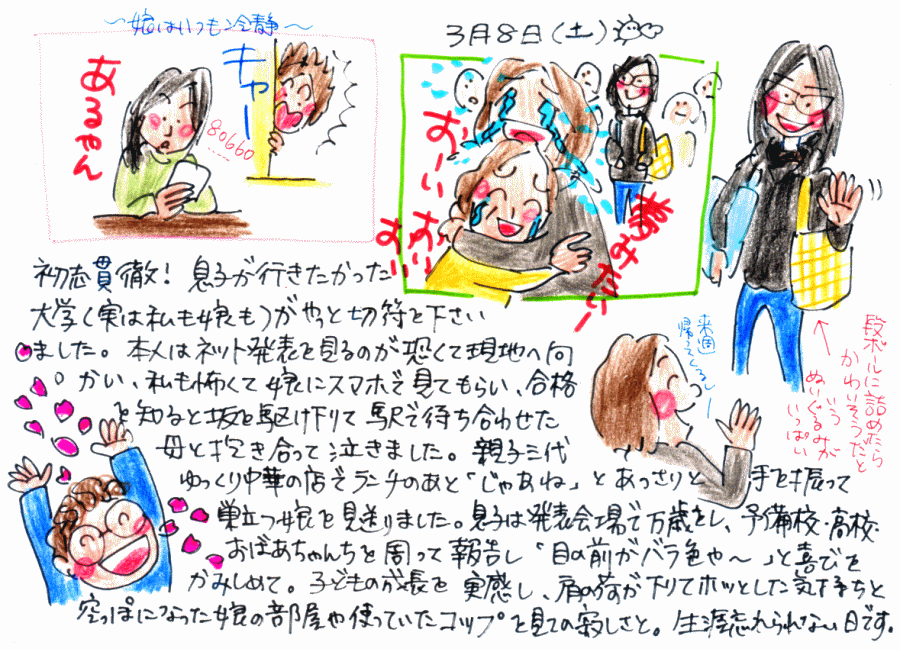 〜娘はいつも冷静〜
キャー
あるやん
80660
3月8日(土)
おーい
おい
おい
夢みたいー
来週
帰ってくるしー
段ボールに詰めたら
かわいそうだと
いう
ぬいぐるみが
いっぱい
初志貫徹! 息子が行きたかった
大学(実は私も娘も)がやっと切符を下さい
ました。本人はネット発表を見るのが恐くて現地へ向
かい、私も怖くて娘にスマホで見てもらい、合格
を知ると坂を駆け下りて駅で待ち合わせた
母と抱き合って泣きました。親子三代
ゆっくり中華の店でランチのあと「じゃあね」とあっさりと手を振って
巣立つ娘を見送りました。息子は発表会場で万歳をし、予備校・高校・
おばあちゃんちを周って報告し「目の前がバラ色や〜」と喜びを
かみしめて。子どもの成長を実感し、肩の荷が下りてホッとした気持ちと
空っぽになった娘の部屋や使っていたコップを見ての寂しさと。生涯忘れられない日です。